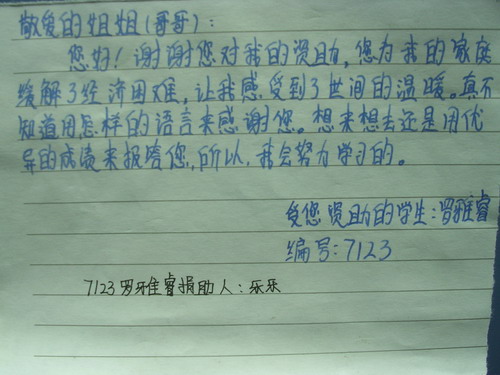 敬爱的姐姐(哥哥):
您好!谢谢您对我的资助,您为我的家庭
缓解了经济困难,让我感受到了世间的温暖。真不
知道用怎样的语言来感谢您。想来想去还是用优
异的成绩来报答您,所以,我会努力学习的。
受您资助的学生:罗雅睿
编号:7123
7123罗雅睿捐助人:乐乐